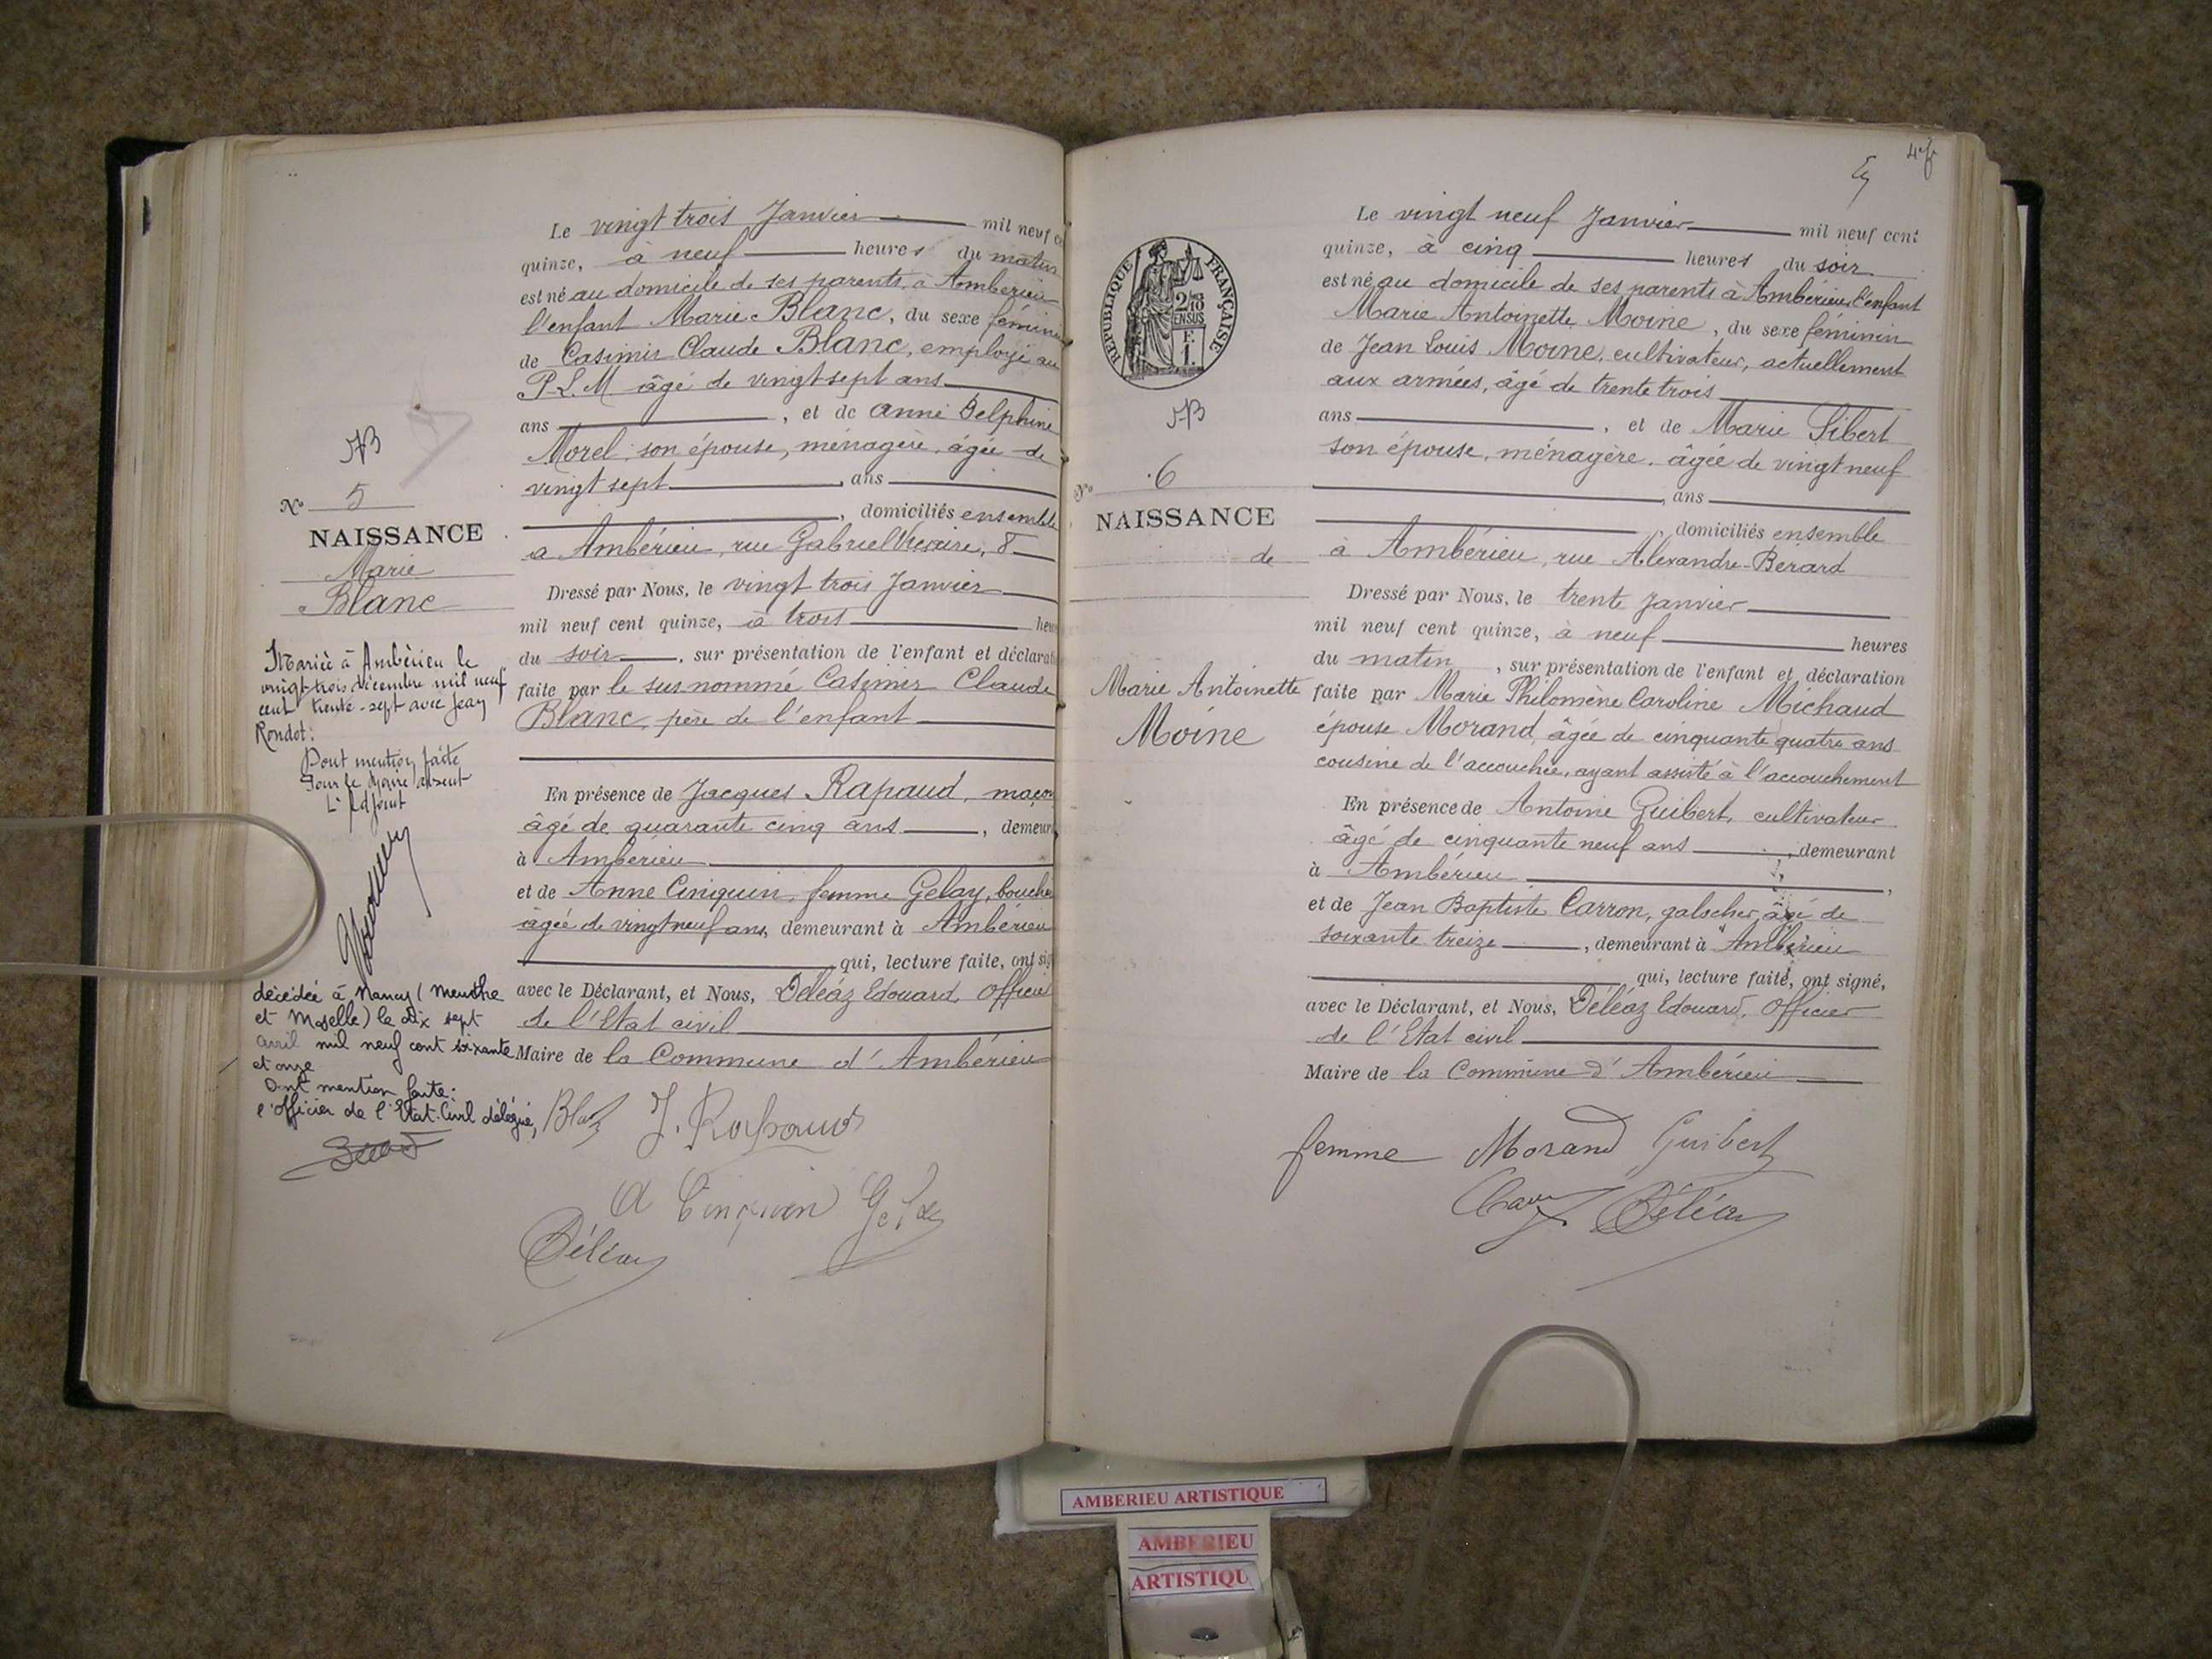 Le vingt trois Janvier mil neuf
quinze, à neuf heures du matin
est né au domicile de ses parents à Ambérieu
l'enfant Marie Blanc, du sexe fémin
de Casimir Claude Blanc, employé au
P-L.M âgé de vingt sept ans
ans , et de Anne Delphine
Morel, son épouse, ménagère, âgée de
vingt sept ans
, domiciliés ensemble
à Ambérieu, rue Gabriel Vicaire, 8
Dressé par Nous, le vingt trois Janvier
mil neuf cent quinze, à trois heu
du soir , sur présentation de l'enfant et déclarat
faite par le sus nommé Casimir Claude
Blanc, père de l'enfant
En présence de Jacques Rapaud, maçon
âgé de quarante cinq ans , demeur
à Ambérieu
et de Anne Cinquin, femme Gelay, bouch
âgée de vingt neuf ans, demeurant à Ambérieu
qui, lecture faite, ont sig
avec le Déclarant, et Nous, Déléaz Edouard, Officier
de l'Etat civil
Maire de la Commune d'Ambérieu
J. Rapaud
A Cinquin
Déléaz
N° 5
NAISSANCE
Marie
Blanc
Mariée à Ambérieu le
vingt-trois décembre mil neuf
cent trente-sept avec Jean
Rondot:
Dont mention faite
Pour le Maire absent
L'Adjoint
décédée à Nancy (Meurthe
et Moselle) le dix sept
avril mil neuf cent soixante
et onze
Dont mention faite:
l'officier de l'Etat-Civil délégué,
Le vingt neuf Janvier mil neuf cent
quinze, à cinq heures du soir
est né au domicile de ses parents à Ambérieu, l'enfant
Marie Antoinette Moine, du sexe féminin
de Jean Louis Moine, cultivateur, actuellement
aux armées, âgé de trente trois
ans , et de Marie Sibert
son épouse, ménagère, âgée de vingt neuf
, ans
, domiciliés ensemble
à Ambérieu, rue Alexandre-Bérard
Dressé par Nous, le trente Janvier
mil neuf cent quinze, à neuf heures
du matin , sur présentation de l'enfant et déclaration
faite par Marie Philomène Caroline Michaud
épouse Morand, âgée de cinquante quatre ans
cousine de l'accouchée, ayant assisté à l'accouchement
En présence de Antoine Guibert, cultivateur
âgé de cinquante neuf ans , demeurant
à Ambérieu
et de Jean Baptiste Carron, galocher, âgé de
soixante treize , demeurant à Ambérieu
qui, lecture faite, ont signé,
avec le Déclarant, et Nous, Déléaz Edouard, Officier
de l'Etat civil
Maire de la Commune d'Ambérieu
femme Morand Guibert
Déléaz
RÉPUBLIQUE FRANÇAISE
N° 6
NAISSANCE
de
Marie Antoinette
Moine
AMBERIEU ARTISTIQUE
AMBERIEU
ARTISTIQU